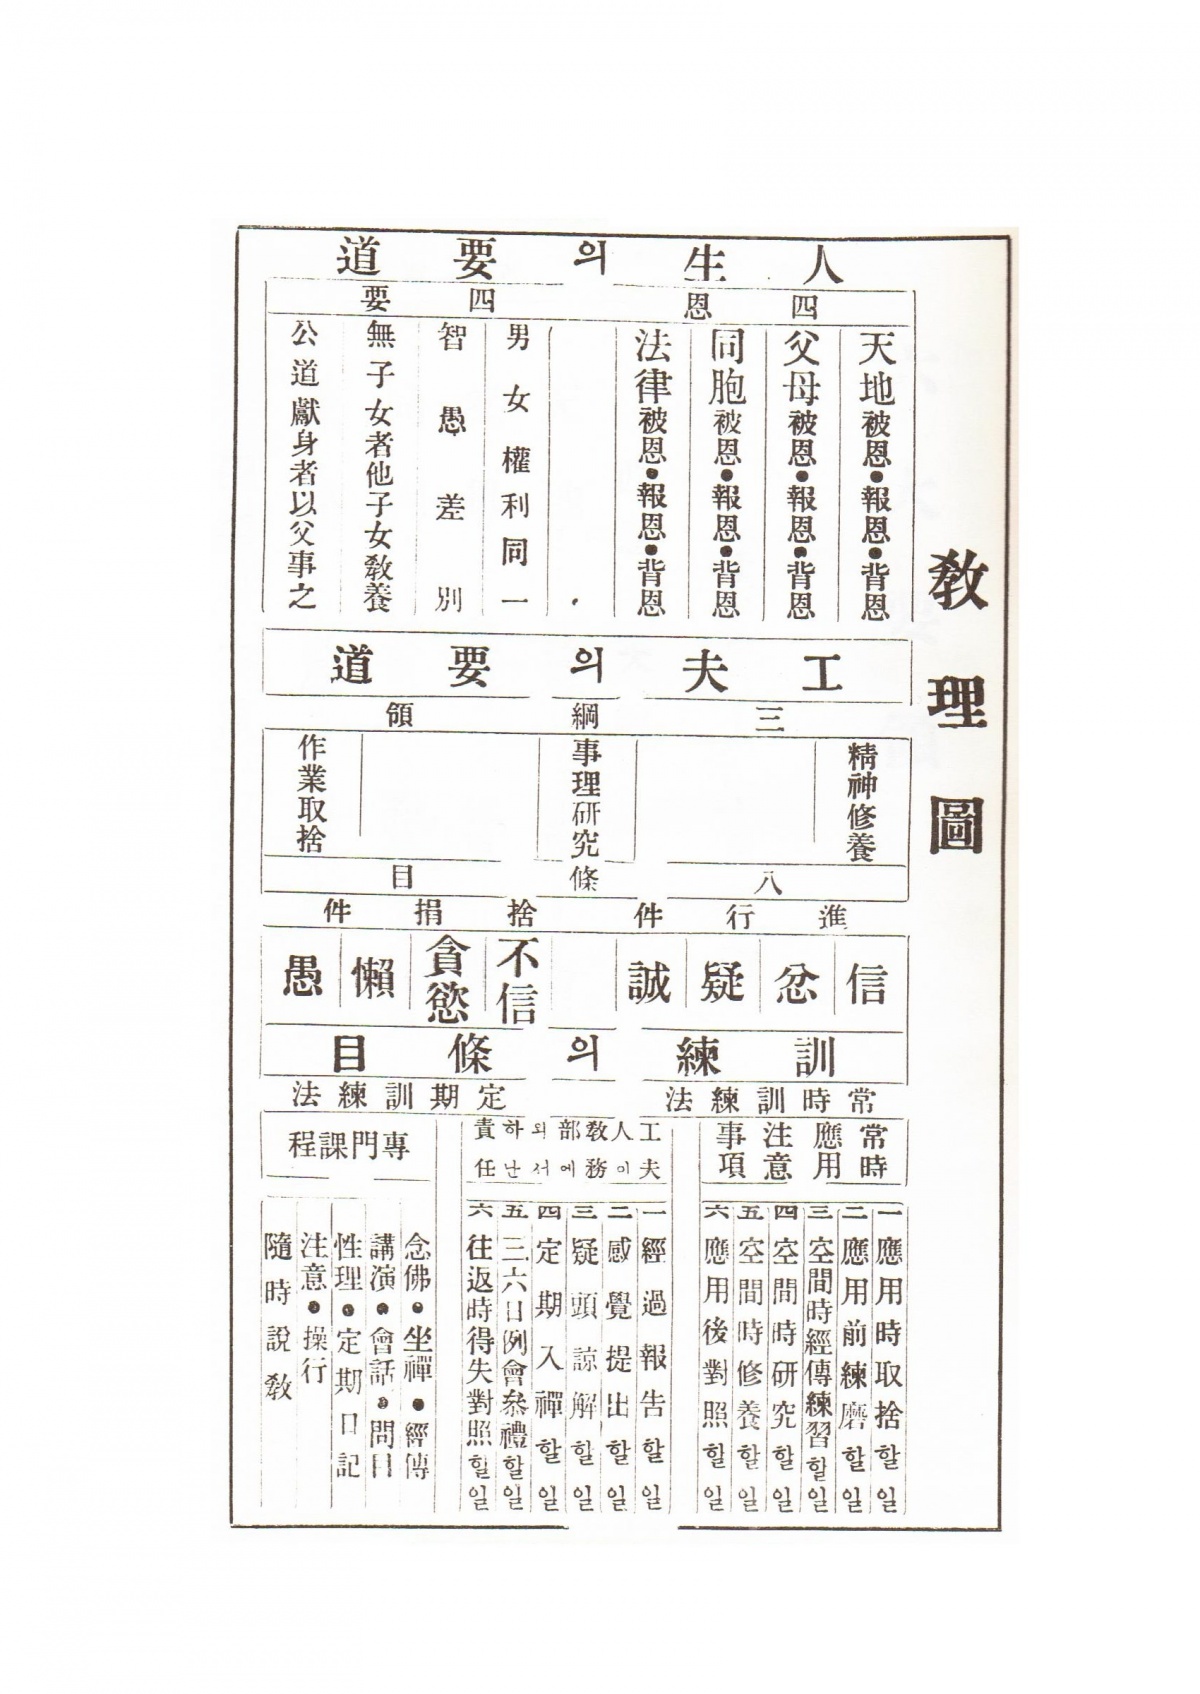 教理圖
人生의要道
四恩
天地被恩●報恩●背恩
父母被恩●報恩●背恩
同胞被恩●報恩●背恩
法律被恩●報恩●背恩
四要
男女權利同一
智愚差別
無子女者他子女教養
公道獻身者以父事之
工夫의要道
三綱領
精神修養
事理研究
作業取捨
八條目
進行件
捨捐件
信
忿
疑
誠
不信
貪慾
懶
愚
訓練의條目
常時訓練法
定期訓練法
常時應用注意事項
一 應用時取捨할일
二 應用前練磨할일
三 空間時經傳練習할일
四 空間時研究할일
五 空間時修養할일
六 應用後對照할일
工夫人이教務部에와서하난責任
一 經過報告할일
二 感覺提出할일
三 疑頭諒解할일
四 定期入禪할일
五 三六日例會參禮할일
六 往返時得失對照할일
專門課程
念佛●坐禪●經傳
講演●會話●問目
性理●定期日記
注意●操行
隨時說教